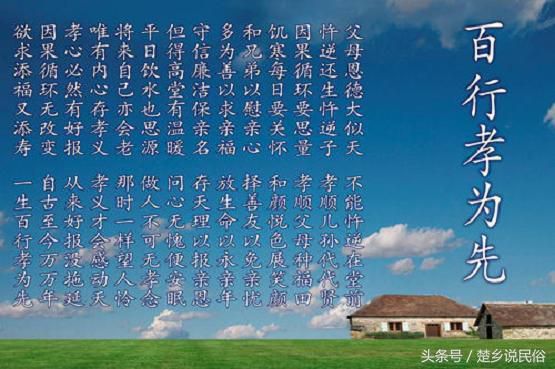 百行孝为先
父母恩德大似天
不能忤逆在堂前
忤逆还生忤逆子
孝顺儿孙代代贤
因果循环要思量
孝顺父母种福田
饥寒每日要关怀
和颜悦色展笑颜
和兄弟以慰亲心
择善友以免亲忧
多为善以求亲福
放生命以永亲年
守信廉洁保亲名
存天理以报亲恩
但得高堂有温暖
问心无愧便安眠
平日饮水也思源
做人不可无孝念
将来自己亦会老
那时一样望人怜
唯有内心存孝义
孝义才会感动天
孝心必然有好报
从来好报没拖延
因果循环无改变
自古至今万万年
欲求添福又添寿
一生百行孝为先
头条号 / 楚乡说民俗